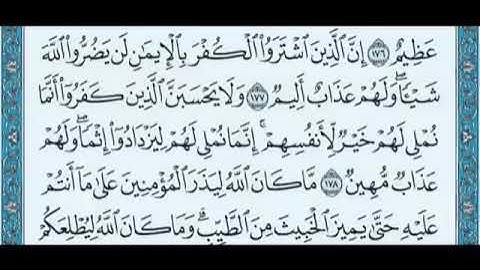 عَظِيمٌ ١٧٦ إِنَّ ٱلَّذِينَ ٱشْتَرَوُا۟ ٱلْكُفْرَ بِٱلْإِيمَٰنِ لَن يَضُرُّوا۟ ٱللَّهَ
شَيْـًٔا ۖ وَلَهُمْ عَذَابٌ أَلِيمٌ ١٧٧ وَلَا يَحْسَبَنَّ ٱلَّذِينَ كَفَرُوٓا۟ أَنَّمَا
نُمْلِى لَهُمْ خَيْرٌ لِّأَنفُسِهِمْ ۚ إِنَّمَا نُمْلِى لَهُمْ لِيَزْدَادُوٓا۟ إِثْمًا ۖ وَلَهُمْ
عَذَابٌ مُّهِينٌ ١٧٨ مَّا كَانَ ٱللَّهُ لِيَذَرَ ٱلْمُؤْمِنِينَ عَلَىٰ مَآ أَنتُمْ
عَلَيْهِ حَتَّىٰ يَمِيزَ ٱلْخَبِيثَ مِنَ ٱلطَّيِّبِ ۗ وَمَا كَانَ ٱللَّهُ لِيُطْلِعَكُمْ